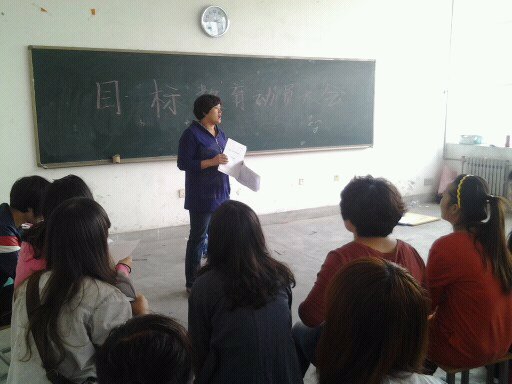 目标教育动员大会